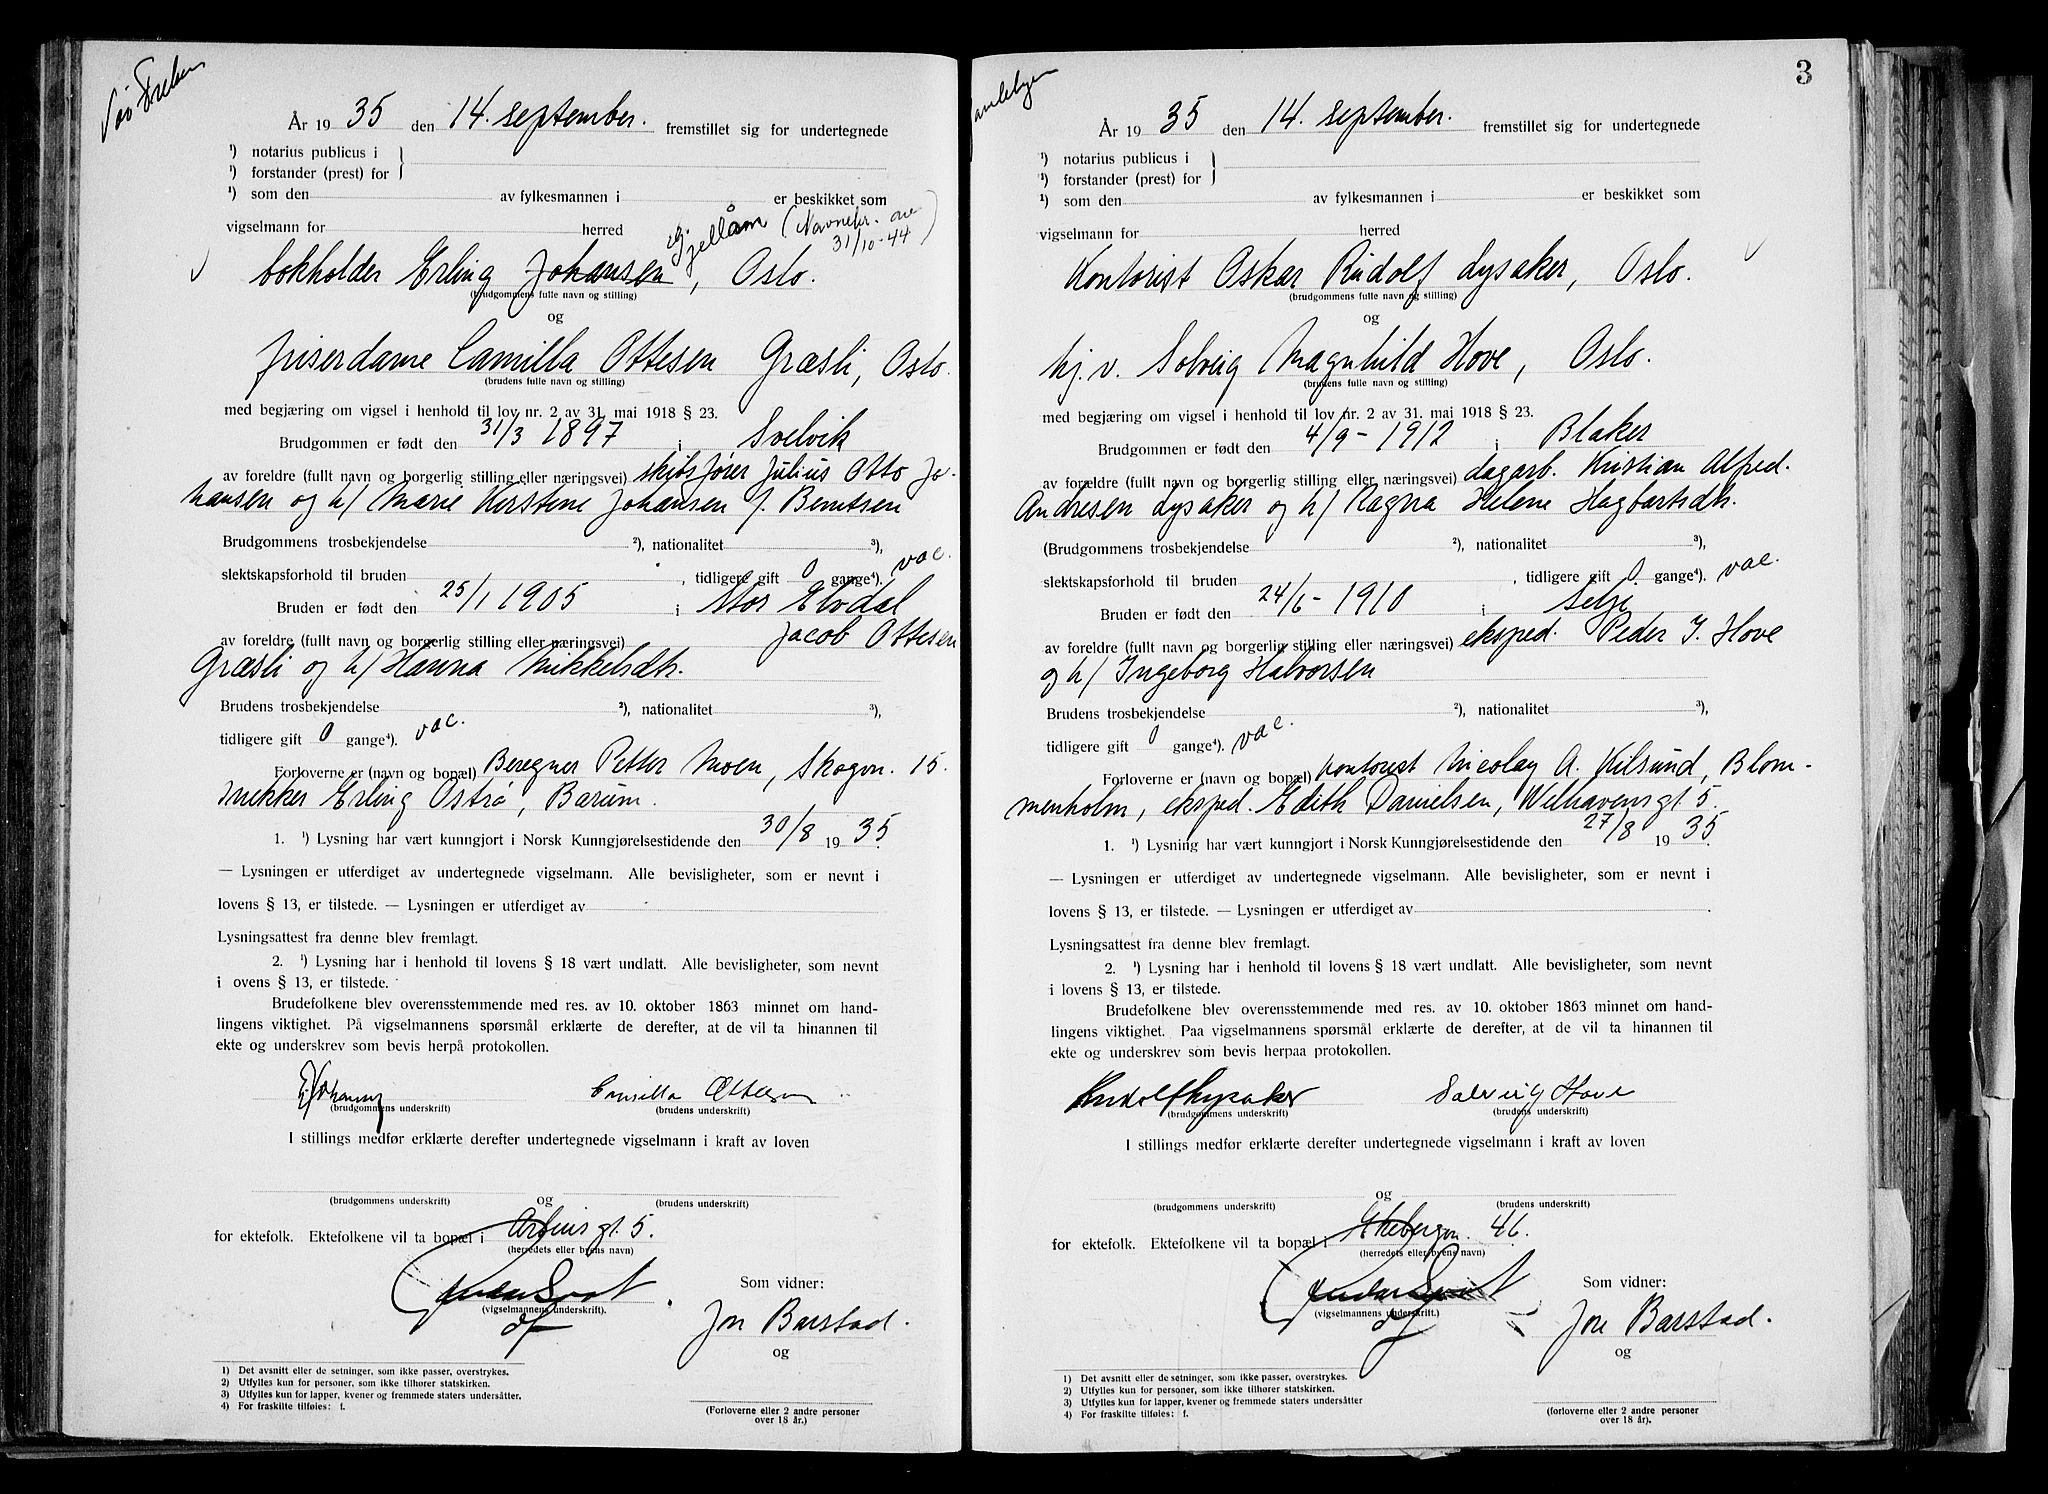 År 1935 den 14. september. fremstillet sig for undertegnede
¹) notarius publicus i
¹) forstander (prest) for
¹) som den av fylkesmannen i er beskikket som
vigselmann for herred
Gjellåm (Navnefor. 31/10-44)
bokholder Erling Johansen, Oslo.
(brudgommens fulle navn og stilling)
og
friserdame Camilla Ottesen Græsli, Oslo.
(brudens fulle navn og stilling)
med begjæring om vigsel i henhold til lov nr. 2 av 31. mai 1918 § 23.
Brudgommen er født den 31/3 1897 i Svelvik
av foreldre (fullt navn og borgerlig stilling eller næringsvei) skibsfører Julius Otto Jo-
hansen og h/ Marie Kirstine Johansen f. Berntsen
Brudgommens trosbekjendelse ²), nationalitet ³),
slektskapsforhold til bruden , tidligere gift 0 gange⁴). vac.
Bruden er født den 25/1 1905 i Stor Elvdal
av foreldre (fullt navn og borgerlig stilling eller næringsvei) Jacob Ottesen
Græsli og h/ Hanna Mikkelsdtr.
Brudens trosbekjendelse ²), nationalitet ³),
tidligere gift 0 gange⁴). vac.
Forloverne er (navn og bopæl) Beregner Petter Moen, Skogvn. 15.
snekker Erling Østrø, Bærum.
1. ¹) Lysning har vært kunngjort i Norsk Kunngjørelsestidende den 30/8 1935.
— Lysningen er utferdiget av undertegnede vigselmann. Alle bevisligheter, som er nevnt i
lovens § 13, er tilstede. — Lysningen er utferdiget av
Lysningsattest fra denne blev fremlagt.
2. ¹) Lysning har i henhold til lovens § 18 vært undlatt. Alle bevisligheter, som nevnt
i ovens § 13, er tilstede.
Brudefolkene blev overensstemmende med res. av 10. oktober 1863 minnet om hand-
lingens viktighet. På vigselmannens spørsmål erklærte de derefter, at de vil ta hinannen til
ekte og underskrev som bevis herpå protokollen.
E Johansen Camilla Ottesen
(brudgommens underskrift) (brudens underskrift)
I stillings medfør erklærte derefter undertegnede vigselmann i kraft av loven
og
(brudgommens underskrift) (brudens underskrift)
for ektefolk. Ektefolkene vil ta bopæl i Arbins gt. 5.
(herredets eller byens navn)
Som vidner:
(vigselmannens underskrift).
Jon Barstad.
og
1) Det avsnitt eller de setninger, som ikke passer, overstrykes.
2) Utfylles kun for personer, som ikke tilhører statskirken.
3) Utfylles kun for lapper, kvener og fremmede staters undersåtter.
4) For fraskilte tilføies: f.
(Forloverne eller 2 andre personer
over 18 år.)
3
År 1935 den 14. september. fremstillet sig for undertegnede
¹) notarius publicus i
¹) forstander (prest) for
¹) som den av fylkesmannen i er beskikket som
vigselmann for herred
Kontorist Oskar Rudolf Lysaker, Oslo.
(brudgommens fulle navn og stilling)
og
hj.v. Solveig Magnhild Hove, Oslo.
(brudens fulle navn og stilling)
med begjæring om vigsel i henhold til lov nr. 2 av 31. mai 1918 § 23.
Brudgommen er født den 4/9 - 1912 i Blaker
av foreldre (fullt navn og borgerlig stilling eller næringsvei) dagarb. Kristian Alfred
Andresen Lysaker og h/ Ragna Helene Hagbartsdtr.
(Brudgommens trosbekjendelse ²), nationalitet ³),
slektskapsforhold til bruden , tidligere gift 0 gange⁴). vac.
Bruden er født den 24/6 - 1910 i Selje
av foreldre (fullt navn og borgerlig stilling eller næringsvei) eksped. Peder J. Hove
og h/ Ingeborg Halvorsen
Brudens trosbekjendelse ²), nationalitet ³),
tidligere gift 0 gange⁴). vac.
Forloverne er (navn og bopæl) kontorist Nicolay A. Kilsund, Blom-
menholm, eksped. Edith Danielsen, Welhavensgt. 5.
1. ¹) Lysning har vært kunngjort i Norsk Kunngjørelsestidende den 27/8 1935.
— Lysningen er utferdiget av undertegnede vigselmann. Alle bevisligheter, som er nevnt i
lovens § 13, er tilstede. — Lysningen er utferdiget av
Lysningsattest fra denne blev fremlagt.
2. ¹) Lysning har i henhold til lovens § 18 vært undlatt. Alle bevisligheter, som nevnt
i lovens § 13, er tilstede.
Brudefolkene blev overensstemmende med res. av 10. oktober 1863 minnet om hand-
lingens viktighet. Paa vigselmannens spørsmål erklærte de derefter, at de vil ta hinannen til
ekte og underskrev som bevis herpaa protokollen.
Rudolf Lysaker Solveig Hove
(brudgommens underskrift) (brudens underskrift)
I stillings medfør erklærte derefter undertegnede vigselmann i kraft av loven
og
(brudgommens underskrift) (brudens underskrift)
for ektefolk. Ektefolkene vil ta bopæl i Ekebergvn. 46.
(herredets eller byens navn)
Som vidner:
(vigselmannens underskrift.)
Jon Barstad.
og
1) Det avsnitt eller de setninger, som ikke passer, overstrykes.
2) Utfylles kun for personer, som ikke tilhører statskirken.
3) Utfylles kun for lapper, kvener og fremmede staters undersåtter
4) For fraskilte tilføies: f.
(forloverne eller 2 andre personer
over 18 år).